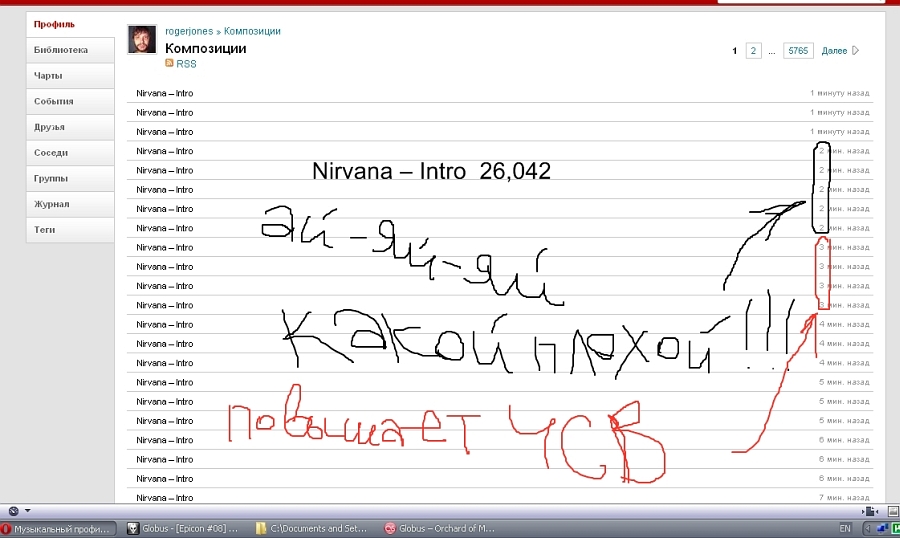 Профиль
Библиотека
Чарты
События
Друзья
Соседи
Группы
Журнал
Теги
rogerjones » Композиции
Композиции
RSS
1 2 ... 5765 Далее
Nirvana – Intro 1 минуту назад
Nirvana – Intro 1 минуту назад
Nirvana – Intro 1 минуту назад
Nirvana – Intro 2 мин. назад
Nirvana – Intro 2 мин. назад
Nirvana – Intro 26,042
Nirvana – Intro 2 мин. назад
Nirvana – Intro 2 мин. назад
Nirvana – Intro 2 мин. назад
ай-яй-яй
Nirvana – Intro 3 мин. назад
Nirvana – Intro 3 мин. назад
Nirvana – Intro 3 мин. назад
Nirvana – Intro 3 мин. назад
какой плохой!!!
Nirvana – Intro 4 мин. назад
Nirvana – Intro 4 мин. назад
Nirvana – Intro 4 мин. назад
Nirvana – Intro 5 мин. назад
Nirvana – Intro 5 мин. назад
Nirvana – Intro 5 мин. назад
повышает ЧСВ
Nirvana – Intro 6 мин. назад
Nirvana – Intro 6 мин. назад
Nirvana – Intro 6 мин. назад
Nirvana – Intro 7 мин. назад
Музыкальный профи... Globus - [Epicon #08] ... C:\Documents and Set... Globus – Orchard of M... EN